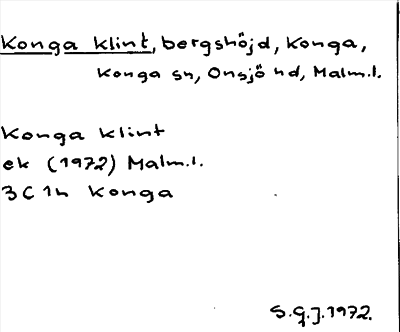 Konga klint, bergshöjd, Konga,
Konga sn, Onsjö hd, Malm.l.
Konga klint
ek (1972) Malm.l.
3C1h Konga
S.G.J.1972.